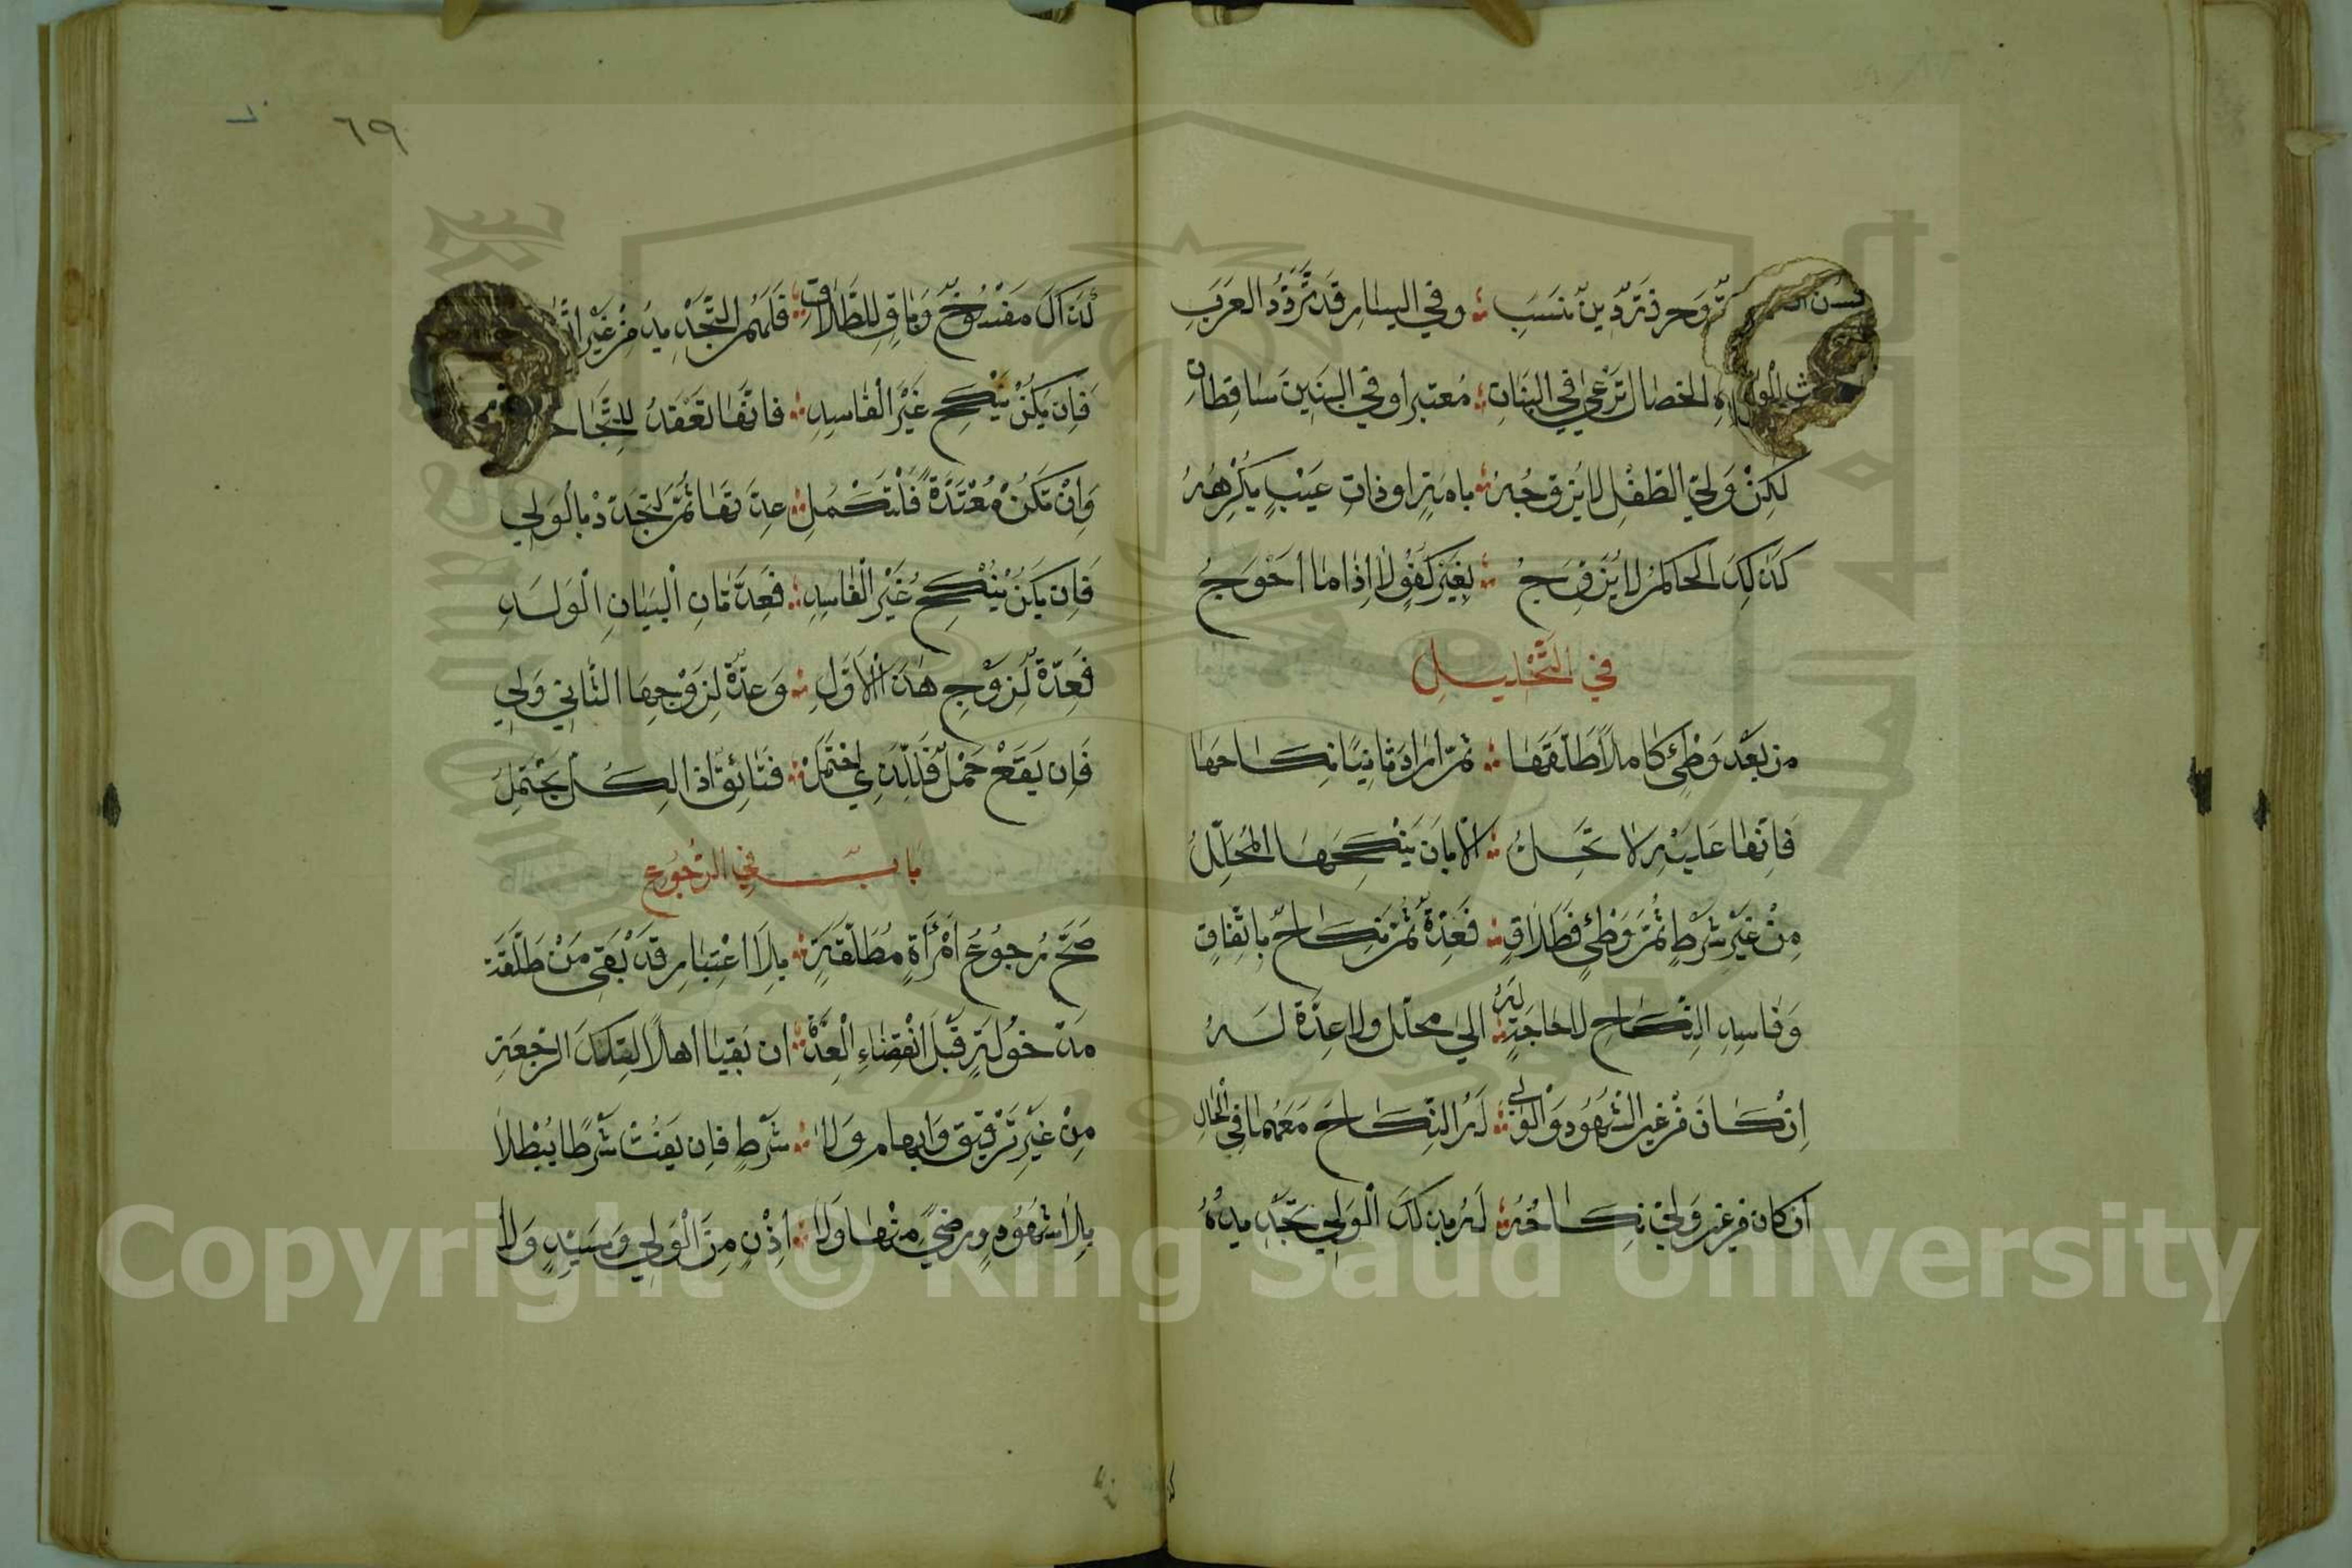 وَحِرفَةٍ دِينٍ نَسَبِ ؞ وفي اليسار قد تَرَدَّدَ العَرَبِ
الخصال تَرْعَى في البَنَاتِ ؞ مُعتبرا وفي البَنِينَ سَاقِطَاتِ
لكِنْ وَلِيّ الطّفْلِ لا يُزَوِّجُهُ ؞ بامةٍ او ذاتِ عَيْبٍ يَكْرَهُهُ
كَذَلِكَ الحاكمُ لا يُزَوِّجُ ؞ بِغَيْرِ كُفْوٍ لَا إذَا مَا أَحْوَجُ
في التَّحْلِيلِ
من بَعْدِ وَطْئٍ كَامِلًا طَلَّقَهَا ؞ ثُمَّ ارَادَ ثَانِيًا نِكَاحَهَا
فَإنَّهَا عَلَيْهِ لا تَحِلُّ ؞ إلّا بِأنْ يَنْكِحَهَا المُحَلِّلُ
مِنْ غَيْرِ شَرْطٍ ثُمَّ وَطْئٍ فَطَلَاقٍ ؞ فَعِدَّةٌ ثُمَّ نِكَاحٌ بِاتِّفَاقٍ
وَفَاسِدِ النِّكَاحِ لا حَاجَةَ لَهُ ؞ إلى محلّل ولا عِدَّة لَهُ
إنْ كَانَ مِنْ غَيْرِ الشُّهُودِ وَالْوَلِي ؞ لَهُ النِّكَاحَ مَعَهُمَا فِي الْحَالِ
ان كان من غير وَلِيٍّ نِكَاحُهُ ؞ لَهُ بِذَلِكَ الْوَلِي تَجْدِيدُهُ
لذاك مَفْسُوخٌ وَبَاقٍ للطَّلَاقِ ؞ فَلَهُمُ التَّجْدِيدُ مِنْ غَيْرِ
فَإن يَكُنْ يَنْكِحُ غَيْرَ الْفَاسِدِ ؞ فانّهَا تَعْتَدُ
وَإنْ تَكُنْ مُعْتَدَّةً فَلْتُكْمِلِ ؞ عِدَّتَهَا ثُمَّ لْتَجَدَّدْ بالْوَلِي
فَإن يَكُنْ يَنْكِحُ غَيْرَ الْفَاسِدِ ؞ فَعِدَّتَانِ الْبَيَانِ الْوَلَدِ
فَعِدَّةٌ لِزَوْجِ هَذَا الْأوَّلِ ؞ وَعِدَّةٌ لِزَوْجِهَا الثَّانِي وَلِي
فَإن يَقَعْ حَمْلٌ فَلِلَّذِي احْتَمَلْ ؞ فَقَائِقٌ اذ الكُلُّ يَحْتَمِلُ
بابٌ في الرُّجُوعِ
صَحَّ رُجُوعُ امْرَأَةٍ مُطَلَّقَةٍ ؞ بِلَا اعْتِبَارٍ قَدْ بَقِيَ مَنْ طَلَّقَهُ
مَدْخُولَةٍ قَبْلَ انْقِضَاءِ الْعِدَّةِ ؞ ان بَقِيَا اهلًا لِتِلْكَ الرَّجْعَةِ
مِنْ غَيْرِ تَوْقِيتٍ وَإبهامٍ وَلَا ؞ شَرْطٍ فإن يَفُتْ شَرْطًا يُبْطَلَا
بِلَا شُهُودٍ وَرِضًى مِنْهَا وَلَا ؞ اِذْنٍ مِنَ الْوَلِي وَسَيِّدٍ وَلَا
٦٩
Copyright © King Saud University